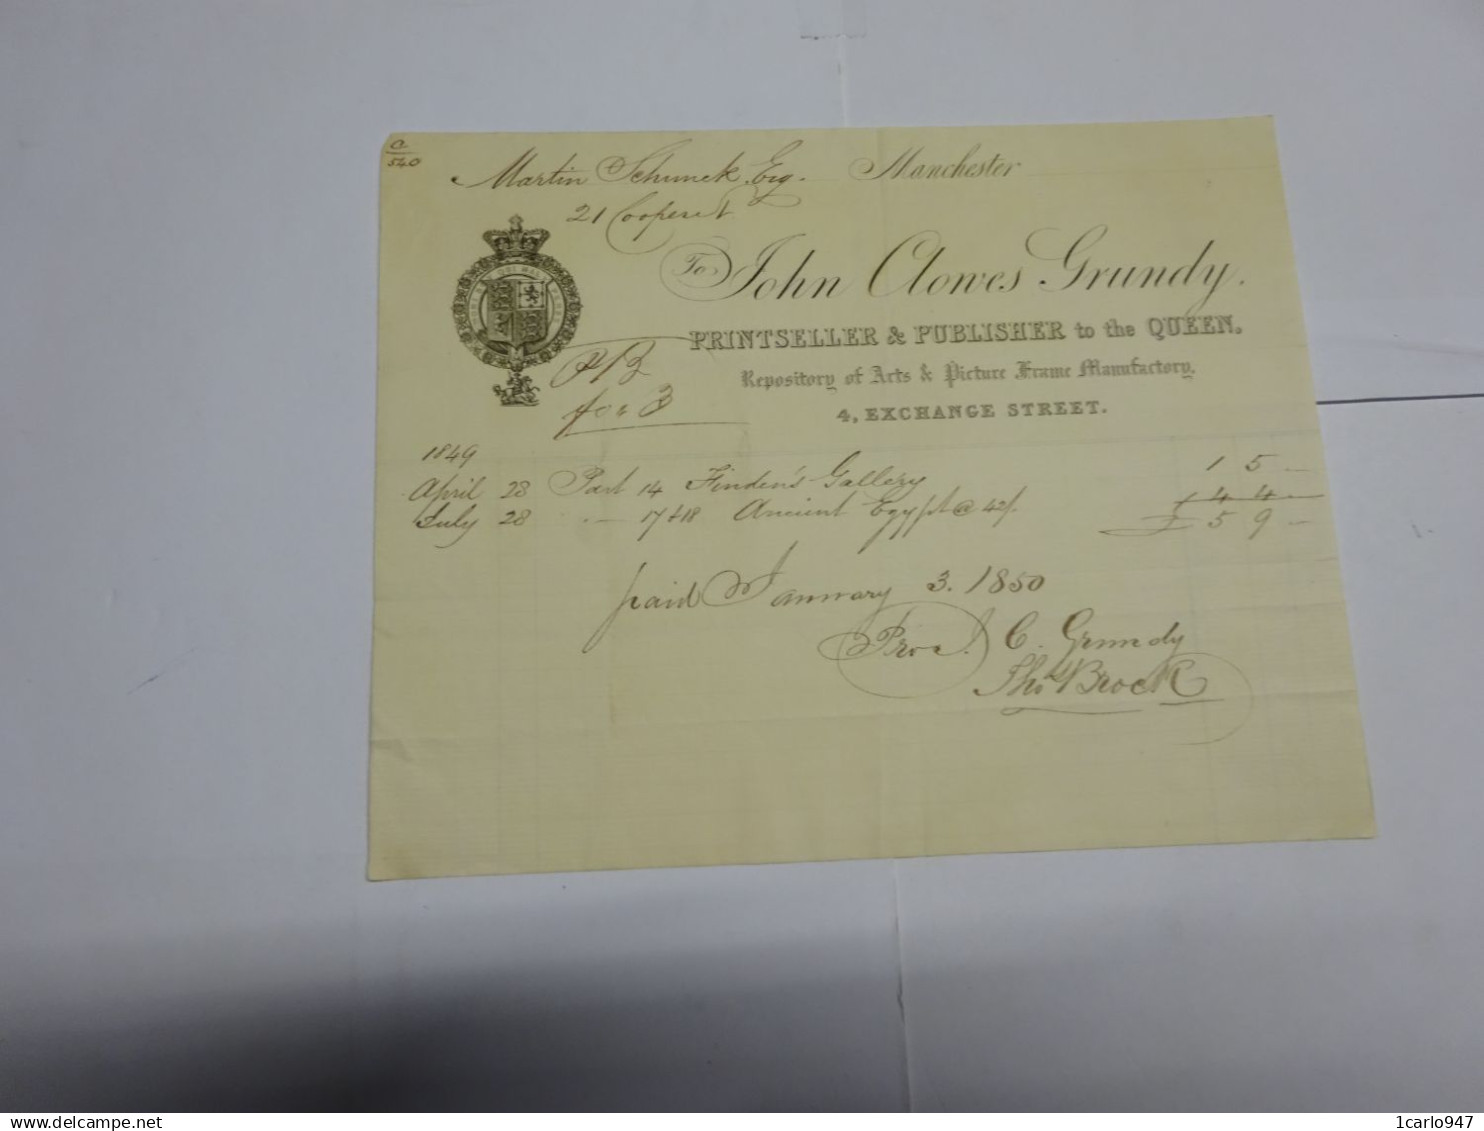 a
540
Martin Schunck Esq. Manchester
21 Cooper St
To John Clowes Grundy.
PRINTSELLER & PUBLISHER to the QUEEN.
Repository of Arts & Picture Frame Manufactory.
4, EXCHANGE STREET.
1849
April 28 Part 14 Finden's Gallery 15 –
July 28 – 17 & 18 Ancient Egypt @ 42/. 44 –
£ 59 –
paid January 3. 1850
Pro J. C. Grundy
Thos Brock
delcampe.net
1carlo947